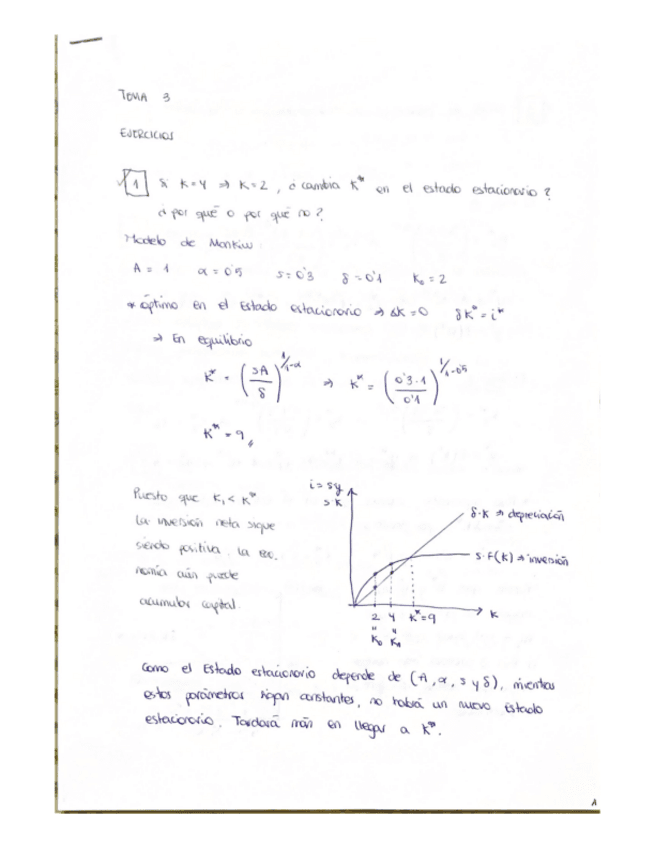 TEMA 3
EJERCICIOS
1 Si K=4 ⇒ K=2, ¿cambia K* en el estado estacionario?
¿por qué o por qué no?
Modelo de Mankiw.
A = 1 α = 0'5 s = 0'3 δ = 0'1 K₀ = 2
* óptimo en el Estado estacionario ⇒ ΔK = 0 δK* = i*
⇒ En equilibrio
K* = (sA/δ)^(1/1-α) ⇒ K* = (0'3·1/0'1)^(1/1-0'5)
K* = 9
Puesto que K₁ < K*
la inversión neta sigue
siendo positiva. La eco-
nomía aún puede
acumular capital.
i = sy
s·K
δ·K ⇒ depreciación
s·F(K) ⇒ inversión
2 4 K*=9 K
" "
K₀ K₁
Como el Estado estacionario depende de (A, α, s y δ), mientras
estos parámetros sigan constantes, no habrá un nuevo Estado
estacionario. Tardará más en llegar a K*.